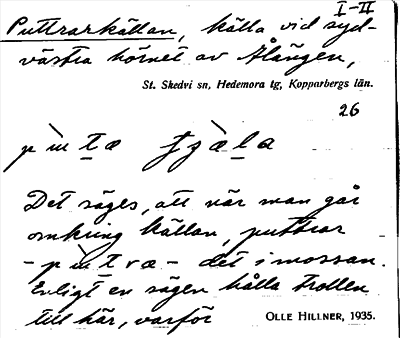 I-II
Puttrarkällan, källa vid syd-
västra hörnet av Ålången,
St. Skedvi sn, Hedemora tg, Kopparbergs län.
26
Det säges, att när man går
omkring källan, puttrar
det i mossan.
Enligt en sägen hålla trollen
till här, varför
OLLE HILLNER, 1935.